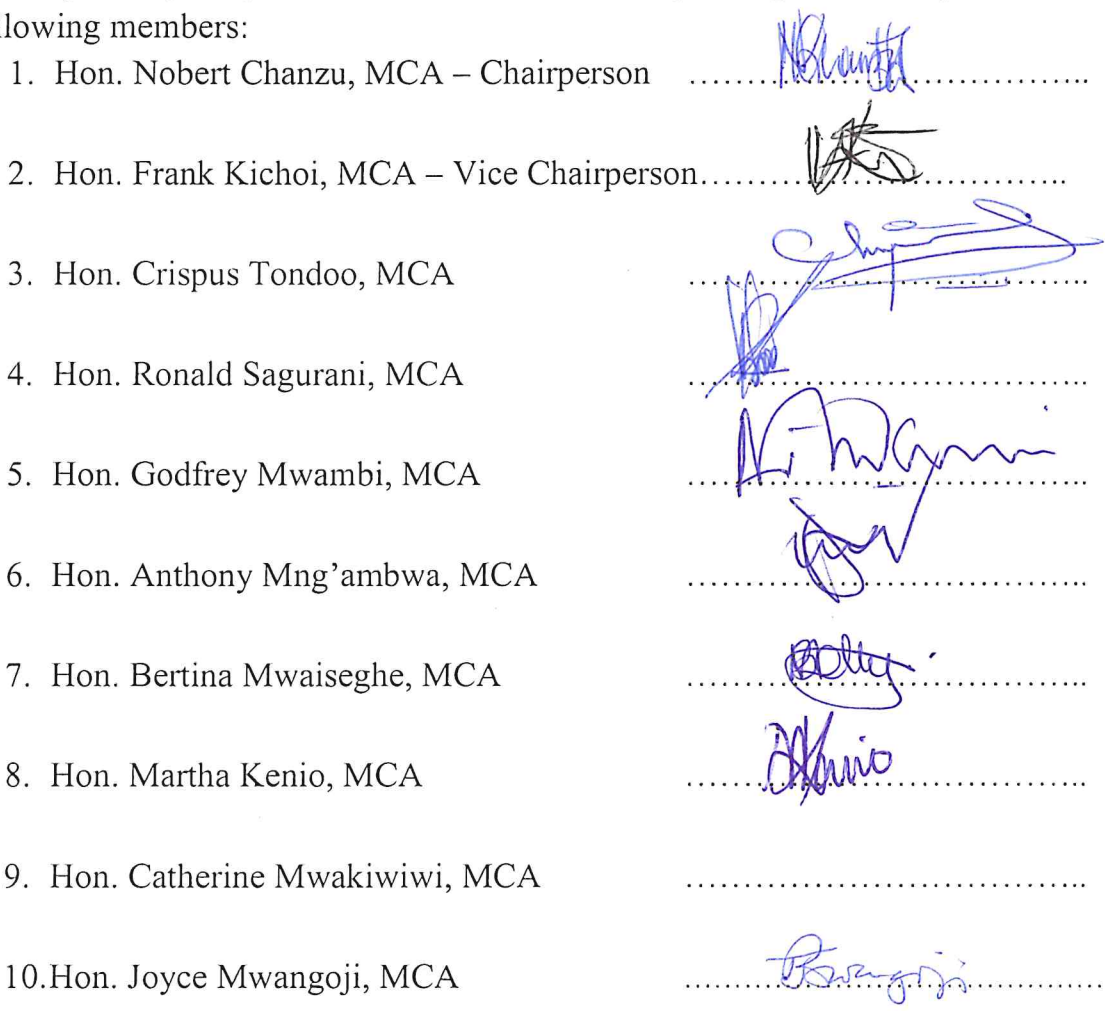 llowing members:
1. Hon. Nobert Chanzu, MCA – Chairperson ..................................
2. Hon. Frank Kichoi, MCA – Vice Chairperson..................................
3. Hon. Crispus Tondoo, MCA ..................................
4. Hon. Ronald Sagurani, MCA ..................................
5. Hon. Godfrey Mwambi, MCA ..................................
6. Hon. Anthony Mng’ambwa, MCA ..................................
7. Hon. Bertina Mwaiseghe, MCA ..................................
8. Hon. Martha Kenio, MCA ..................................
9. Hon. Catherine Mwakiwiwi, MCA ..................................
10.Hon. Joyce Mwangoji, MCA ..................................